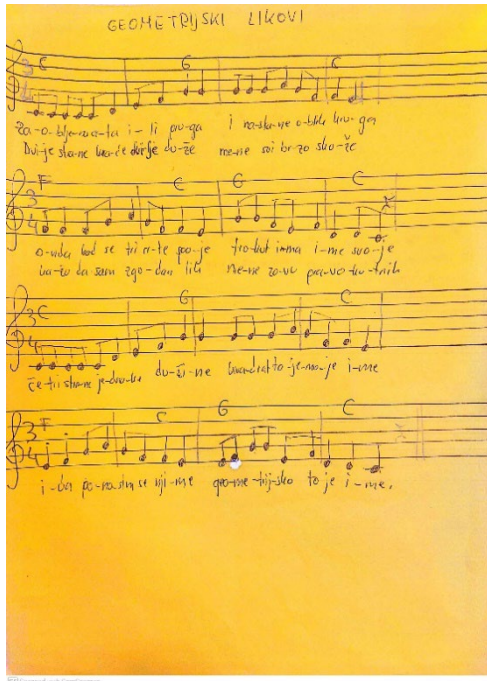 GEOMETRIJSKI LIKOVI
C G C
i - li pru-ga i na-sta-ne o-blik kru-ga
Dvi-je stra-ne kra-će dvi-je du-že me-ne svi br-zo slo-že
F C G C
o-nda kad se tri cr-te spo-je tro-kut i-ma i-me svo-je
ka-žu da sam zgo-dan lik me-ne zo-vu pra-vo-ku-tnik
C G C
če-tri stra-ne je-dna-ke du-ži-ne kva-drat to je mo-je i-me
F C G C
i - da po-no-sim se nji-me geo-me-trij-sko to je i-me.